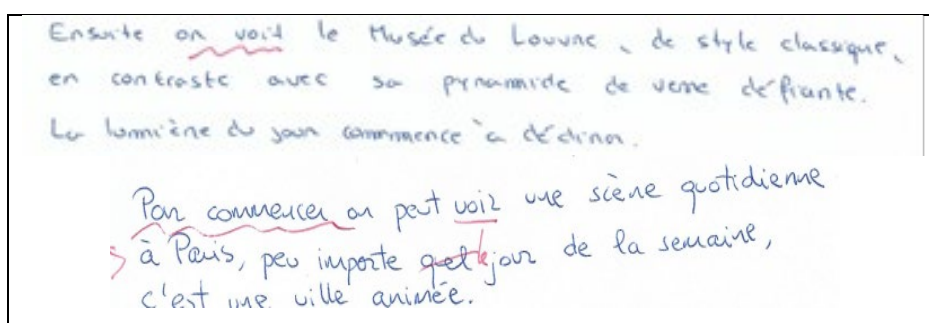 Ensuite on voit le Musée du Louvre, de style classique,
en contraste avec sa pyramide de verre défiante.
La lumière du jour commence à décliner.
Pour commencer on peut voir une scène quotidienne
à Paris, peu importe quel le jour de la semaine,
c'est une ville animée.